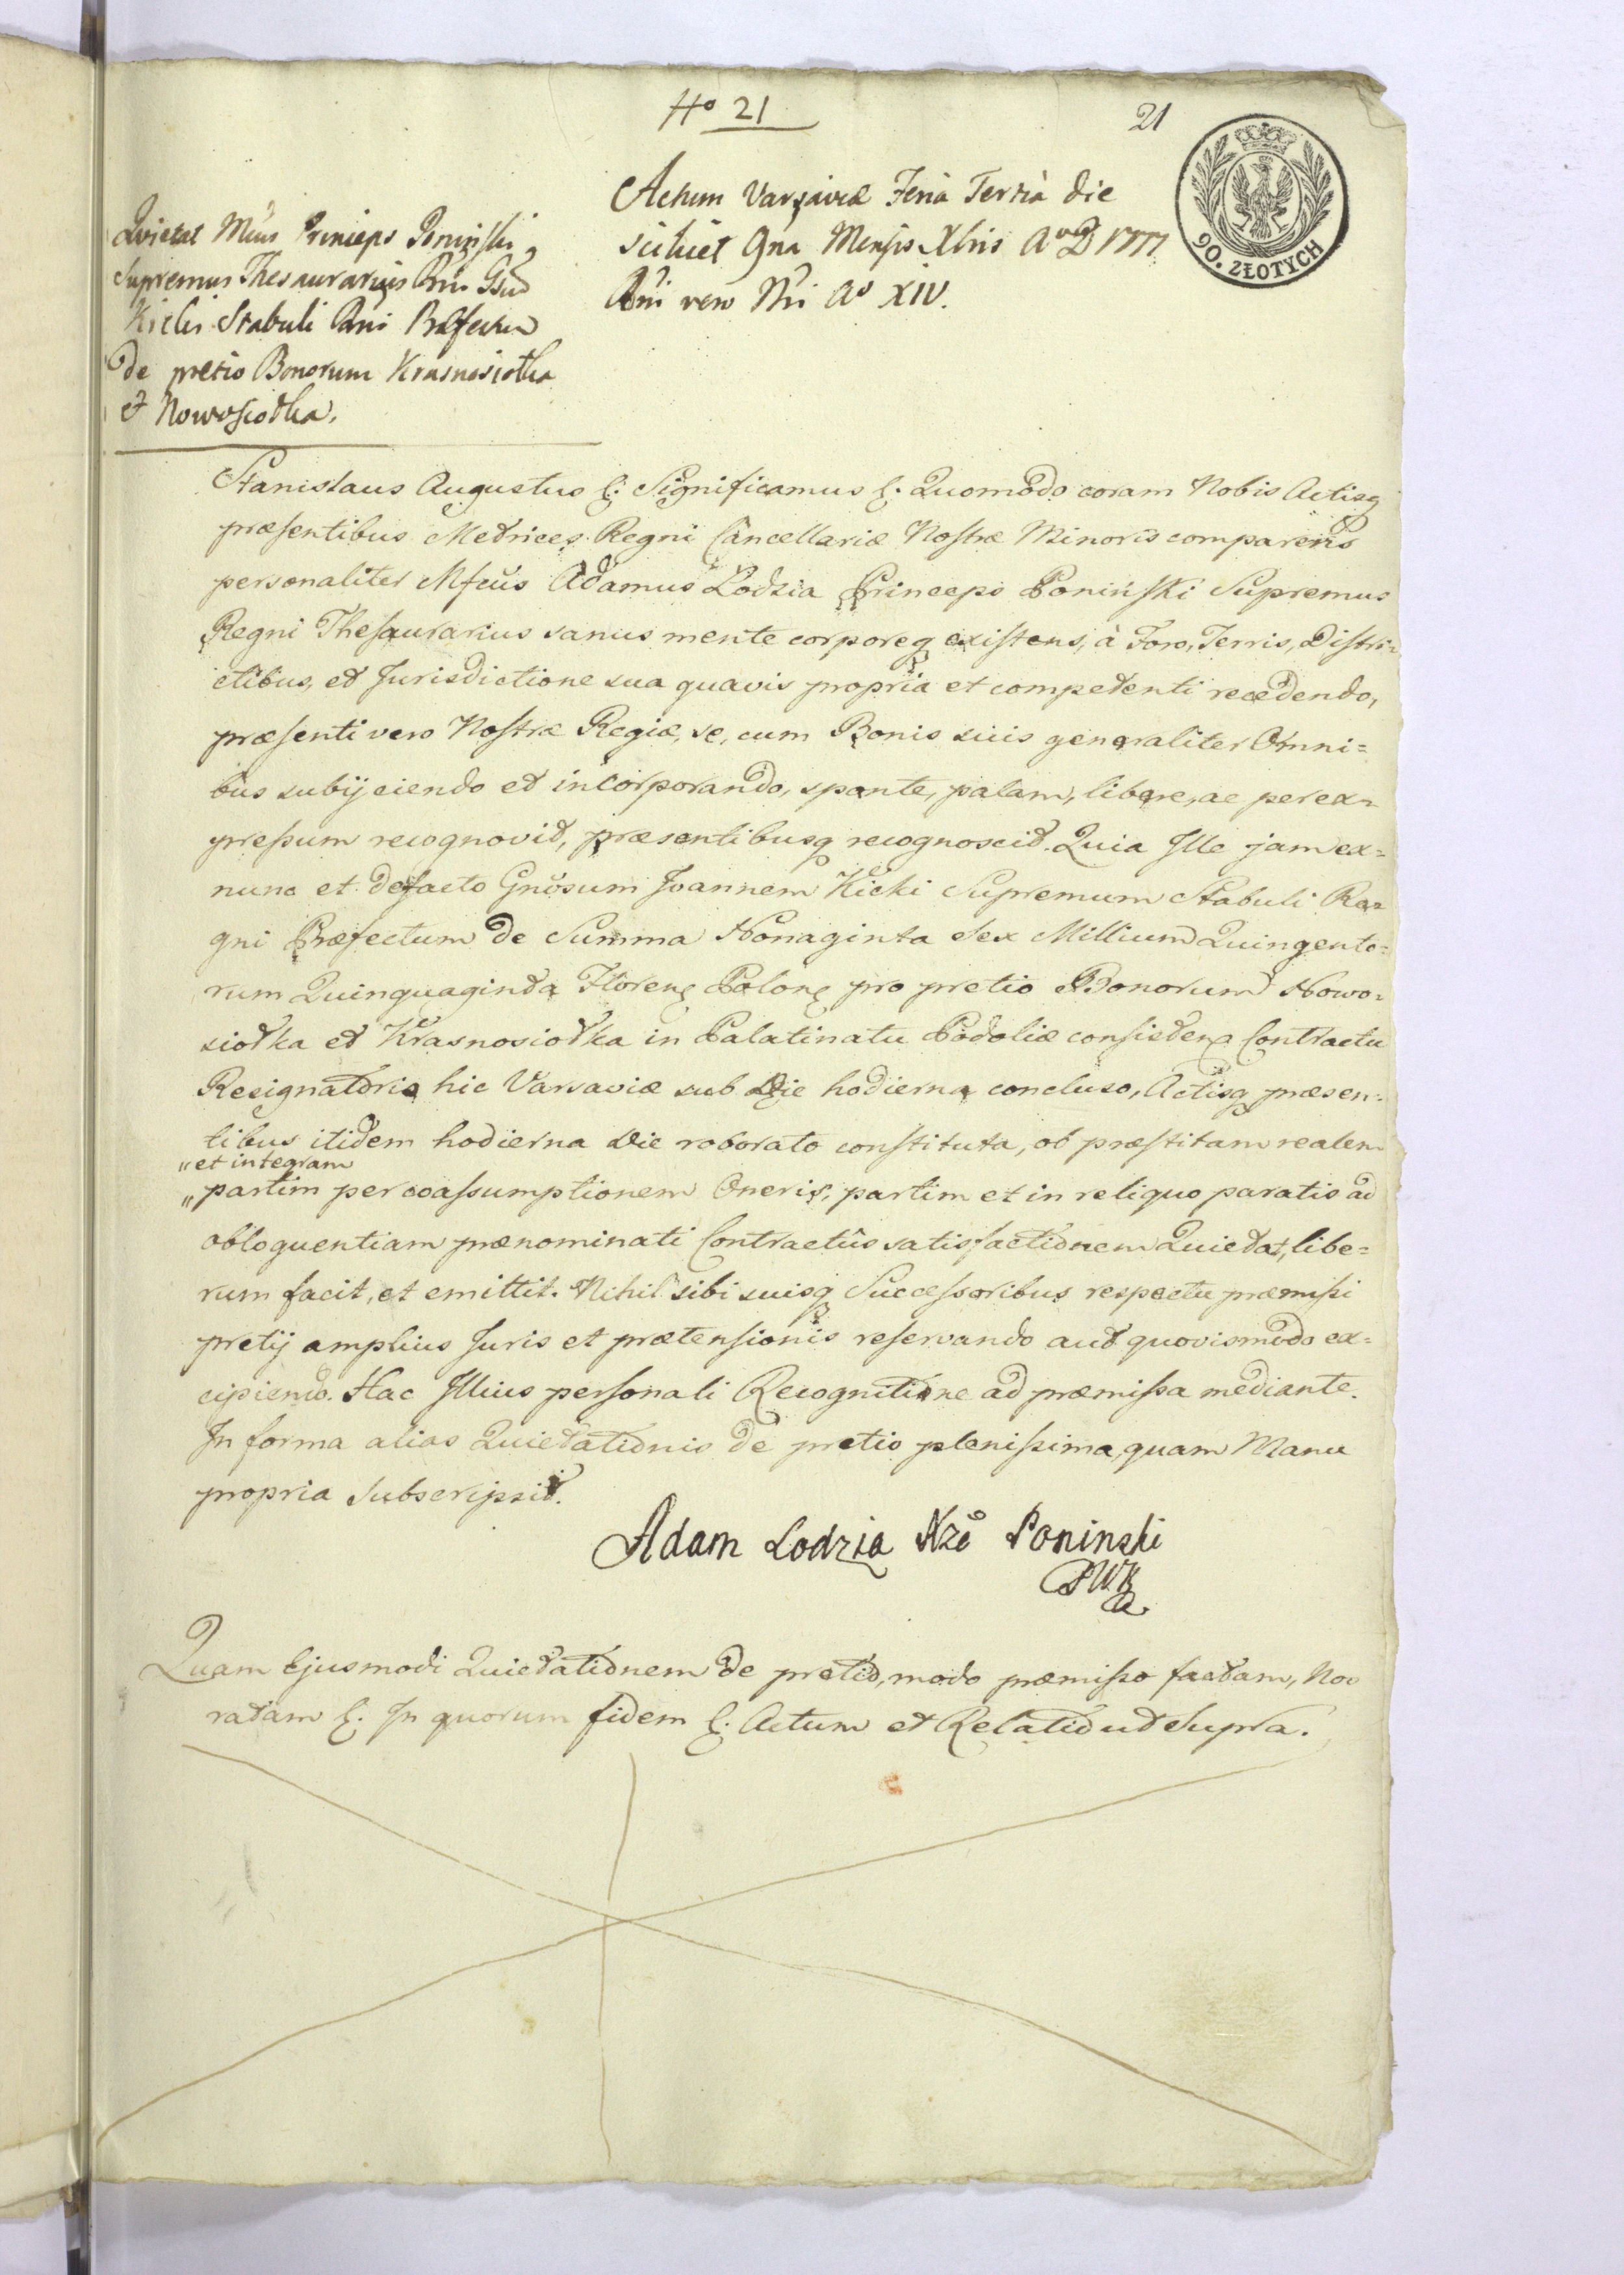 No 21
21
90. ZŁOTYCH
Actum Varsaviæ Feria Tertia die
scilicet 9na Mensis Xbris Ao D 1777
Rni vero Nri Ao XIV.
Quietat Mcus Princeps Poninski
Supremus Thesaurarius Rni Gsum
Kicki Stabuli Rni Præfectum
de pretio Bonorum Krasnosiołka
et Nowosiołka.
Stanislaus Augustus &: Significamus &. Quomodo coram Nobis Actisq
præsentibus Metrices Regni Cancellariæ Nostræ Minoris comparens
personaliter Mfcus Adamus Łodzia Princeps Poniński Supremus
Regni Thesaurarius sanus mente corporeq existens, à Foro, Terris, Distri=
ctibus, et Jurisdictione sua quavis propria et competenti recedendo,
præsenti vero Nostræ Regiæ, se, cum Bonis suis generaliter Omni=
bus subijciendo et incorporando, sponte, palam, libere, ac per ex=
pressum recognovit, præsentibusq recognoscit. Quia Ille jam ex=
nunc et defacto Gnosum Joannem Kicki Supremum Stabuli Re=
gni Præfectum de Summa Nonaginta Sex Millium Quingento=
rum Quinquaginta Floren Polon pro pretio Bonorum Nowo=
siołka et Krasnosiołka in Palatinatu Podoliæ consisten Contractu
Resignatorio hic Varsaviæ sub Die hodierna concluso, Actisq præsen=
tibus itidem hodierna Die roborato constituta, ob præstitam realem
"et integram
" partim per coassumptionem Oneris, partim et in reliquo paratis ad
obloquentiam prænominati Contractûs satisfactionem Quietat, libe=
rum facit, et emittit. Nihil sibi suisq Successoribus respectu præmissi
pretij amplius Juris et prætensionis reservando aut quovismodo ex=
cipiendo. Hac Illius personali Recognitione ad præmissa mediante.
In forma alias Quietationis de pretio plenissima, quam Manu
propria subscripsit.
Adam Lodzia Xże Poninski
PWK
Quam Ejusmodi Quietationem de pretio, modo præmisso factam, Nos
ratam &. In quorum fidem &. Actum et Relatio ut Supra.